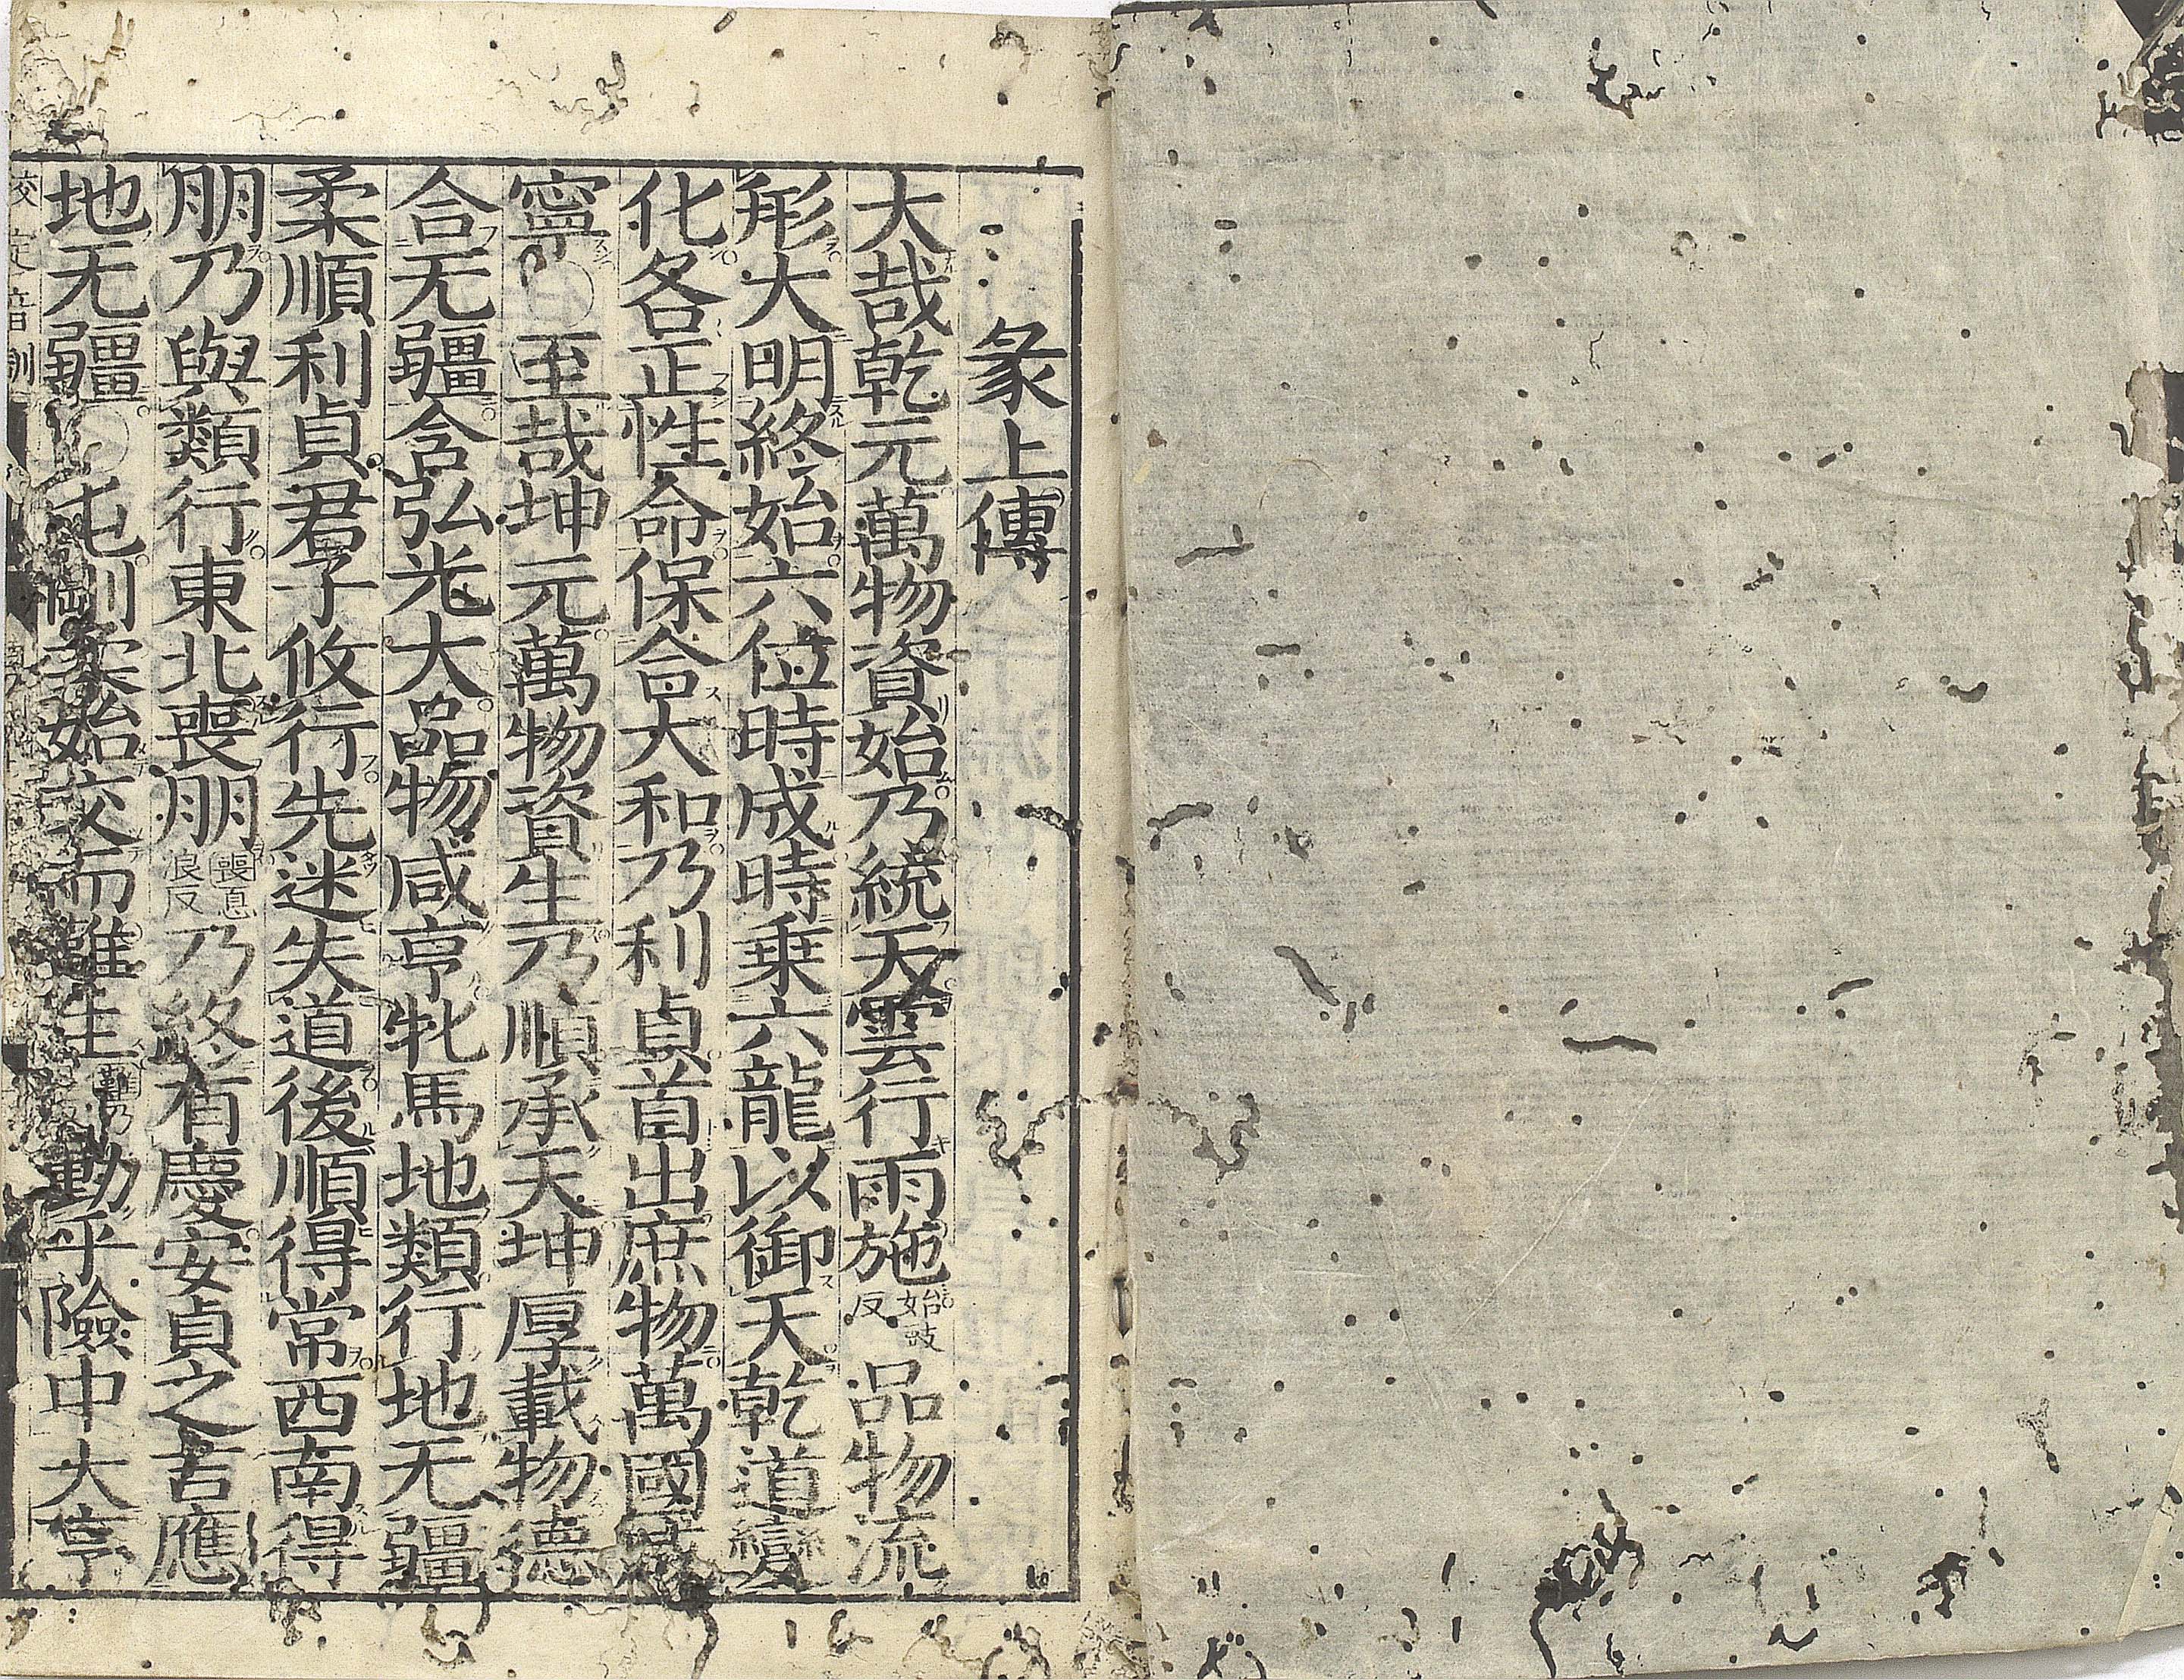 彖上傳
大哉乾元萬物資始乃統天雲行雨施始豉反品物流
形大明終始六位時成時乗六龍以御天乾道變
化各正性命保合大和乃利貞首出庶物萬國咸
寧〇至哉坤元萬物資生乃順承天坤厚載物德
合无疆含弘光大品物咸亨牝馬地類行地无疆
柔順利貞君子攸行先迷失道後順得常西南得
朋乃與類行東北喪朋喪息浪反乃終有慶安貞之吉應
地无疆〇屯剛柔始交而難生難乃動乎險中大亨